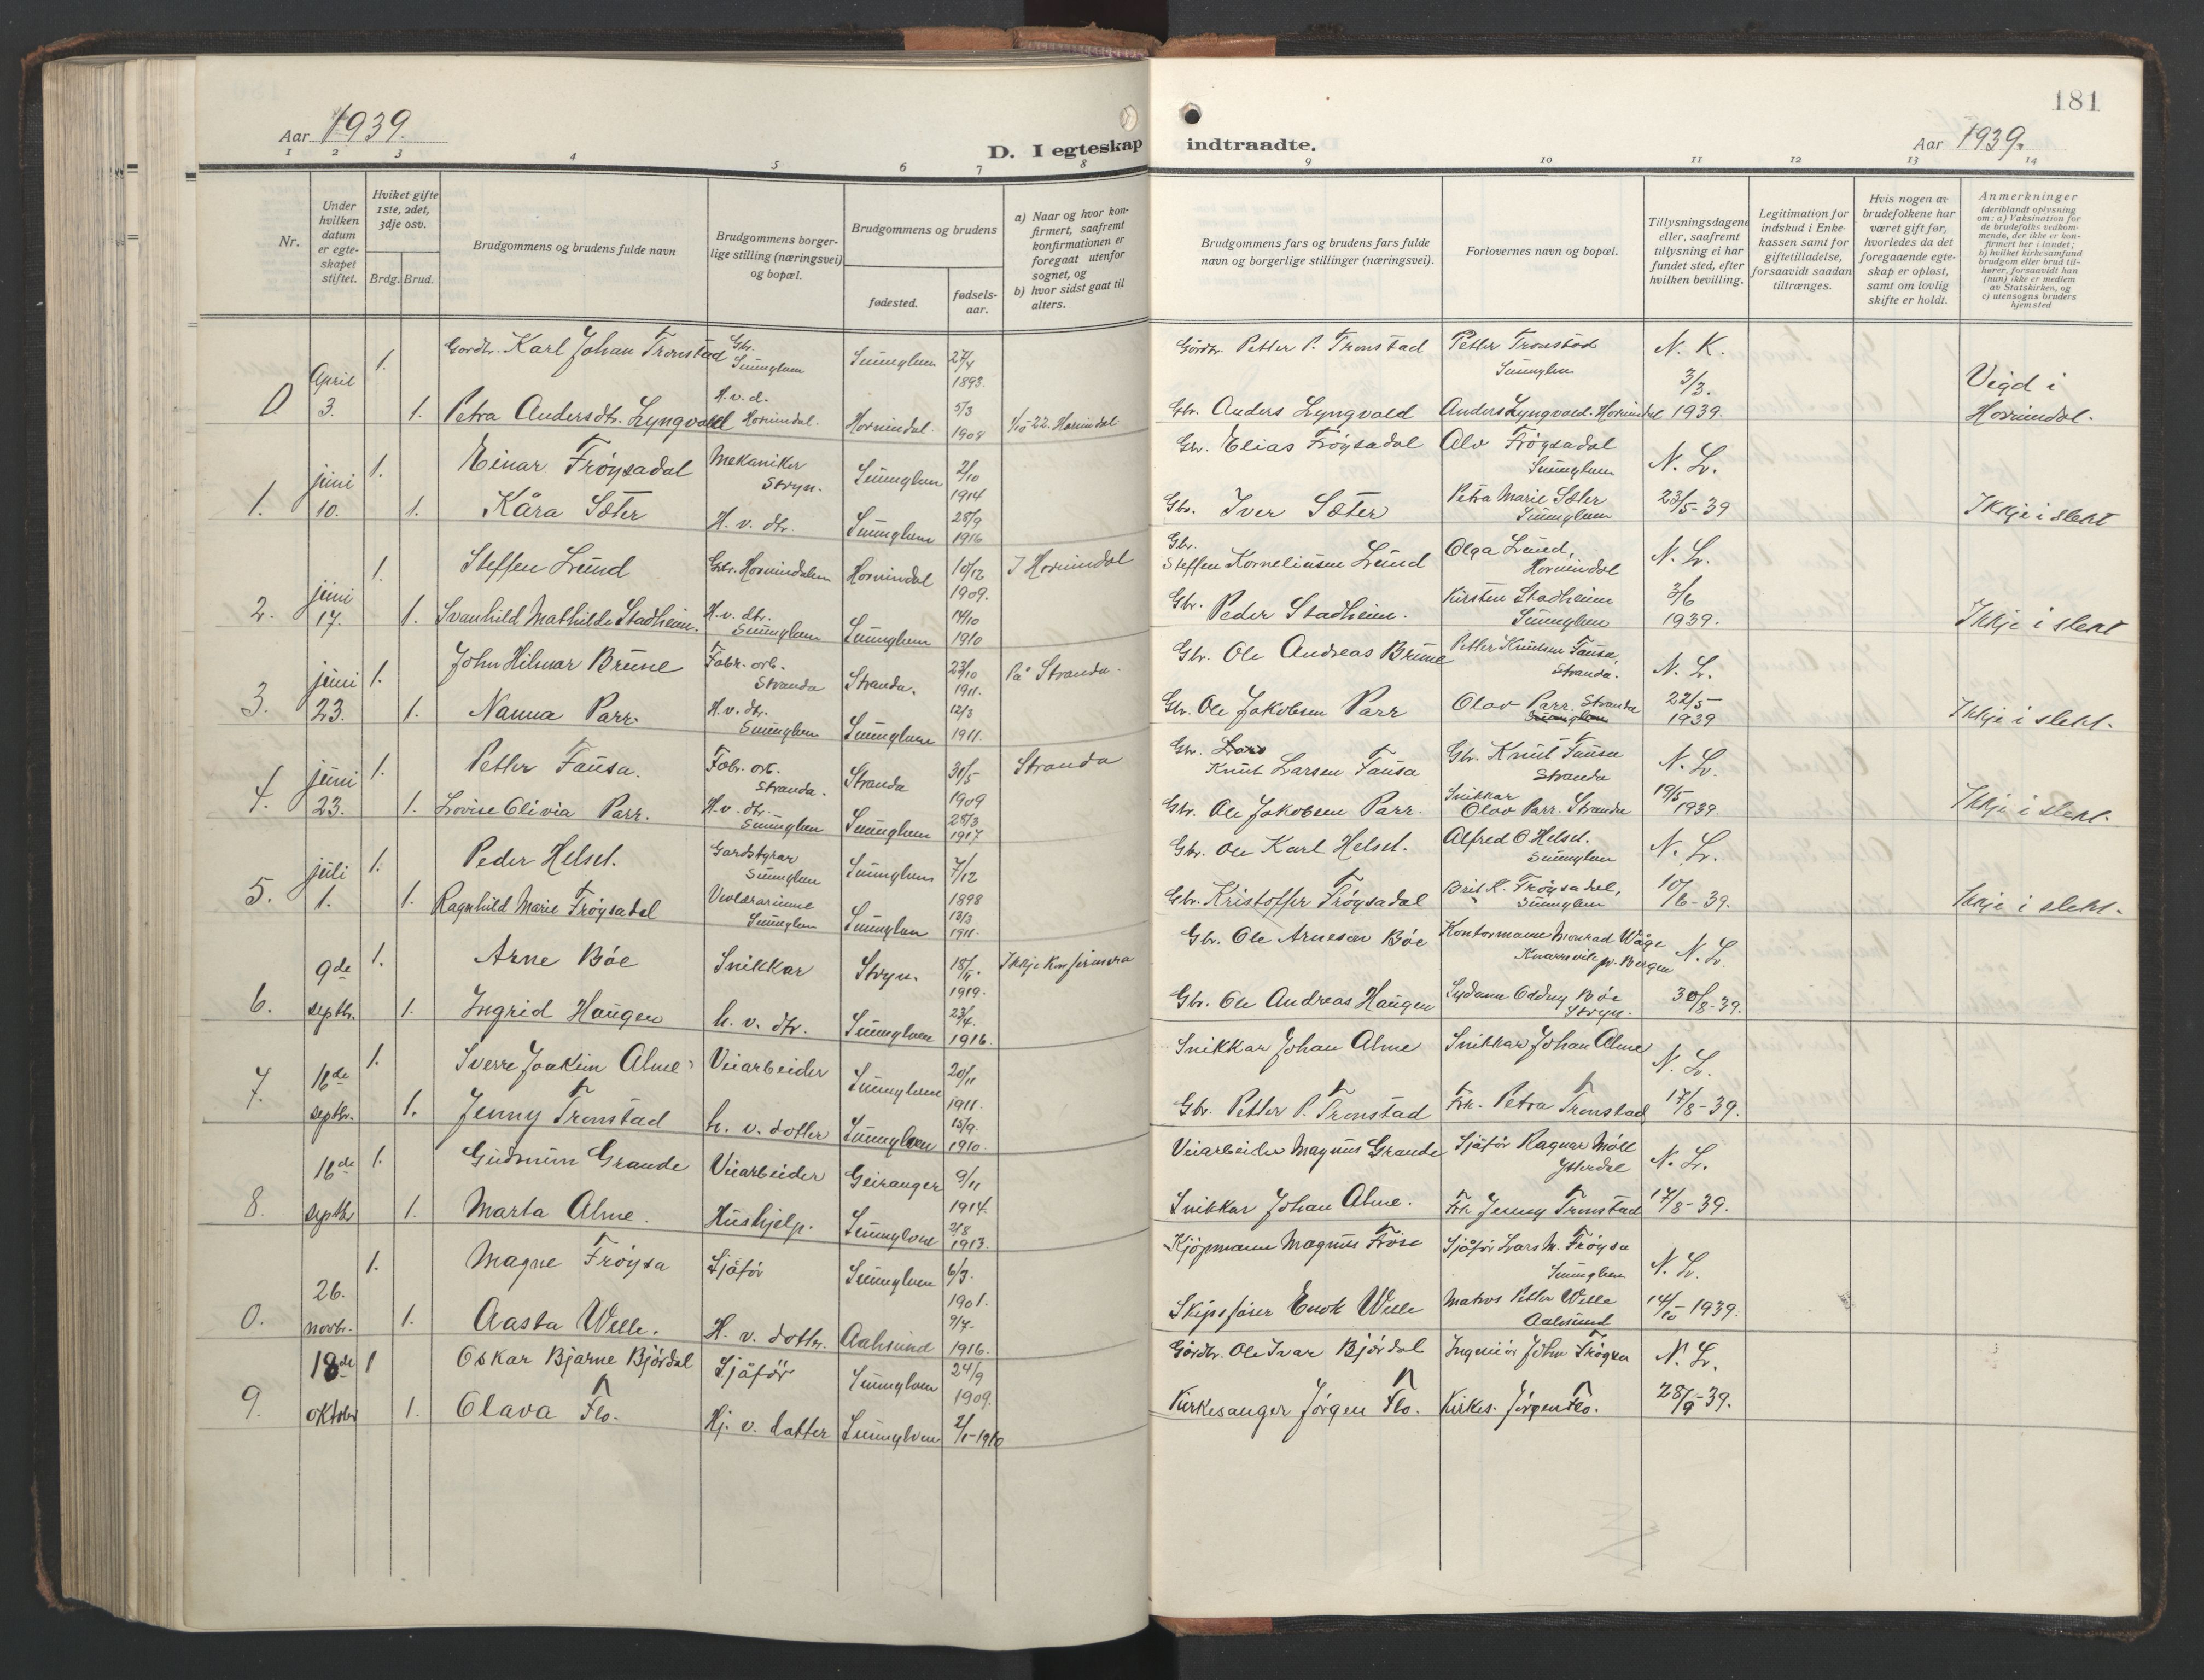 181
Aar 1939.
D. I egteskap indtraadte.
Aar 1939.
1 2 3 4 5 6 7 8 9 10 11 12 13 14
Nr.
Under hvilken datum er egteskapet stiftet.
Hviket gifte 1ste, 2det, 3dje osv.
Brdg. Brud.
Brudgommens og brudens fulde navn
Brudgommens borgerlige stilling (næringsvei) og bopæl.
Brudgommens og brudens
fødested.
fødselsaar.
a) Naar og hvor konfirmert, saafremt konfirmationen er foregaat utenfor sognet, og
b) hvor sidst gaat til alters.
Brudgommens fars og brudens fars fulde navn og borgerlige stillinger (næringsvei).
Forlovernes navn og bopæl.
Tillysningsdagene eller, saafremt tillysning ei har fundet sted, efter hvilken bevilling.
Legitimation for indskud i Enkekassen samt for giftetilladelse, forsaavidt saadan tiltrænges.
Hvis nogen av brudefolkene har været gift før, hvorledes da det foregaaende egteskap er opløst, samt om lovlig skifte er holdt.
Anmerkninger
(deriblandt oplysning om: a) Vaksination for de brudefolks vedkommende, der ikke er konfirmert her i landet; b) hvilket kirkesamfund brudgom eller brud tilhører, forsaavidt han (hun) ikke er medlem av Statskirken, og c) utensogns bruders hjemsted
1. Gardbr. Karl Johan Tronstad Gbr. Sunnylven Sunnylven 27/4 1893. Gardbr. Petter P. Tronstad Petter Tronstad Sunnylven N. K.
0. April 3. 1. Petra Andersdtr. Lyngvold H. v. d. Hornindal. Hornindal. 5/3 1908 1/10 22. Hornindal Gbr. Anders Lyngvold Anders Lyngvold. Hornindal 3/3. 1939. Vigd i Hornindal.
1. Einar Frøysadal Mekaniker Stryn. Sunnylven 2/10 1914 Gbr. Elias Frøysadal Alv Frøysadal Sunnylven N. L.
1. juni 10. 1. Kåra Sæter H. v. dtr. Sunnylven 28/9 1916 Gbr. Iver Sæter Petra Marie Sæter Sunnylven 23/5-39 Ikkje i slekt
1. Steffen Lund Gbr. Hornindalen Hornindal 10/12 1909. I Hornindal Gbr. Steffen Korneliusen Lund Olga Lund, Hornindal N. L.
2. juni 17. 1. Svanhild Mathilde Stadheim. H. v. dtr. Sunnylven Sunnylven 14/10 1910 Gbr. Peder Stadheim. Kirsten Stadheim Sunnylven 3/6 1939. Ikkje i slekt
1. John Hilmar Brune Fabr. arb. Stranda Stranda. 23/10 1911. På Stranda. Gbr. Ole Andreas Brune Petter Knutsen Fausa, Stranda. N. L.
3. juni 23. 1. Nanna Parr. H. v. dtr. Sunnylven Sunnylven 12/3 1911. Gbr. Ole Jakobsen Parr Olav Parr. Stranda Sunnylven 22/5 1939 Ikkje i slekt.
1. Petter Fausa. Fabr. arb. Stranda. Stranda 31/5 1909 Stranda Gbr. Lars Knut Larsen Fausa Gbr. Knut Fausa Stranda N. L.
4. juni 23. 1. Lovise Olivia Parr. H. v. dtr. Sunnylven Sunnylven 28/3 1917 Gbr. Ole Jakobsen Parr. Snikkar Olav Parr. Stranda 19/5 1939. Ikkje i slekt.
1. Peder Helset. Gardstyrar Sunnylven Sunnylven 7/12 1898 Gbr. Ole Karl Helset. Alfred O Helset. Sunnylven N. L.
5. juli 1. 1. Ragnhild Marie Frøysadal Vevlærarinne Sunnylven Sunnylven 13/3 1911. Gbr. Kristoffer Frøysadal Brit K. Frøysadal, Sunnylven 10/6-39. Ikkje i slekt.
1. Arne Bøe Snikkar Stryn. 18/11. 1919. Ikkje konfirmera Gbr. Ole Arnesen Bøe Kontormann Monrad Wåge Knarrevik pr. Bergen N. L.
6. 9de septbr. 1. Ingrid Haugen h. v. dtr. Sunnylven 23/4. 1916. Gbr. Ole Andreas Haugen Sydame Oddny Bøe Stryn. 30/8-39.
1. Sverre Joakim Alme Veiarbeider Sunnylven 20/11 1911. Snikkar Johan Alme Snikkar Johan Alme N. L.
7. 16de septbr. 1. Jenny Tronstad h. v. dotter Sunnylven 15/9. 1910. Gbr. Petter P. Tronstad Frk. Petra Tronstad 17/8-39.
1. Gudmun Grande Veiarbeider Geiranger 9/11 1914. Veiarbeider Magnus Grande Sjåfør Ragnar Møll Ytterdal N. L.
8. 16de septbr 1. Marta Alme. Hushjelp. Sunnylven 2/8 1913. Snikkar Johan Alme. Frk Jenny Tronstad 17/8-39.
1. Magne Frøysa Sjåfør Sunnylven 6/3. 1901. Kjøpmann Magnus Frøse Sjåfør Lars M. Frøysa Sunnylven N. L.
0. 26. novbr. 1. Aasta Welle. H. v. dotter. Aalesund 9/7. 1916. Skipsfører Enok Welle Matros Petter Welle Aalesund 14/10-1939.
18de 1 Oskar Bjarne Bjørdal Sjåfør Sunnylven 24/9 1909. Gardbr. Ole Ivar Bjørdal Ingeniør John Frøysa N. L.
9. oktober 1. Olava Flo. Hj. v. datter Sunnylven 2/1-1910 Kirkesanger Jørgen Flo. Kirkes. Jørgen Flo. 28/9-39.